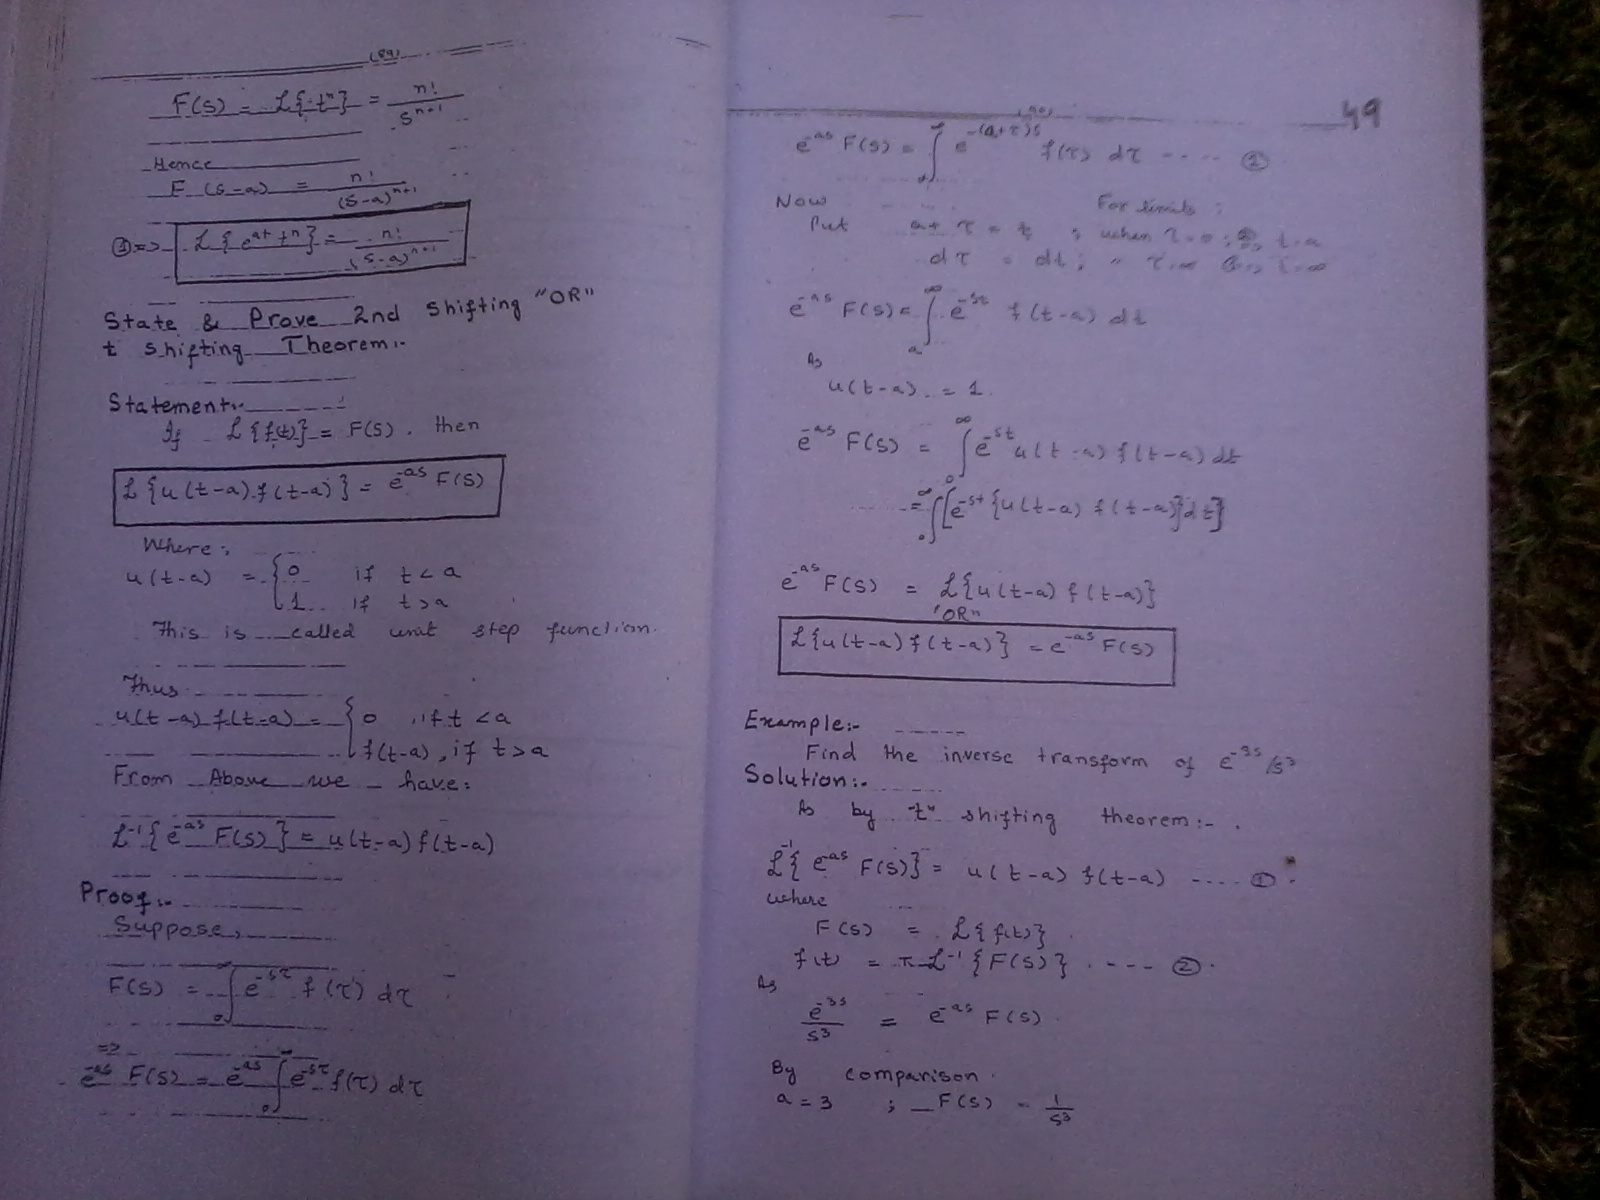 (89)
F(s) = L{t^n} = n!/s^{n+1}
Hence
F(s-a) = n!/(s-a)^{n+1}
① => L{e^{at} t^n} = n!/(s-a)^{n+1}
State & Prove 2nd Shifting "OR"
t shifting Theorem:-
Statement:-
If L{f(t)} = F(s), then
L{u(t-a).f(t-a)} = e^{-as} F(s)
Where;
u(t-a) = { 0 if t<a
1 if t>a
This is called unit step function.
Thus
u(t-a) f(t-a) = { 0 , if t <a
f(t-a), if t>a
From Above we have:
L^{-1}{e^{-as} F(s)} = u(t-a) f(t-a)
Proof:-
Suppose,
F(s) = ∫_0^∞ e^{-sτ} f(τ) dτ
=>
e^{-as} F(s) = e^{-as} ∫_0^∞ e^{-sτ} f(τ) dτ
49
e^{-as} F(s) = ∫_0^∞ e^{-(a+τ)s} f(τ) dτ ---- ①
Now For limits;
Put a+τ = t ; when τ=0 ; t=a
dτ = dt; " τ=∞ t=∞
e^{-as} F(s) = ∫_a^∞ e^{-st} f(t-a) dt
As
u(t-a) = 1
e^{-as} F(s) = ∫_0^∞ e^{-st} u(t-a) f(t-a) dt
= ∫_0^∞ [e^{-st} {u(t-a) f(t-a)} dt]
e^{-as} F(s) = L{u(t-a) f(t-a)}
"OR"
L{u(t-a) f(t-a)} = e^{-as} F(s)
Example:-
Find the inverse transform of e^{-3s}/s^3
Solution:-
As by "t" shifting theorem:-
L^{-1}{e^{-as} F(s)} = u(t-a) f(t-a) ---- ①
where
F(s) = L{f(t)}
f(t) = L^{-1}{F(s)} ---- ②
As
e^{-3s}/s^3 = e^{-as} F(s)
By comparison
a = 3 ; F(s) = 1/s^3